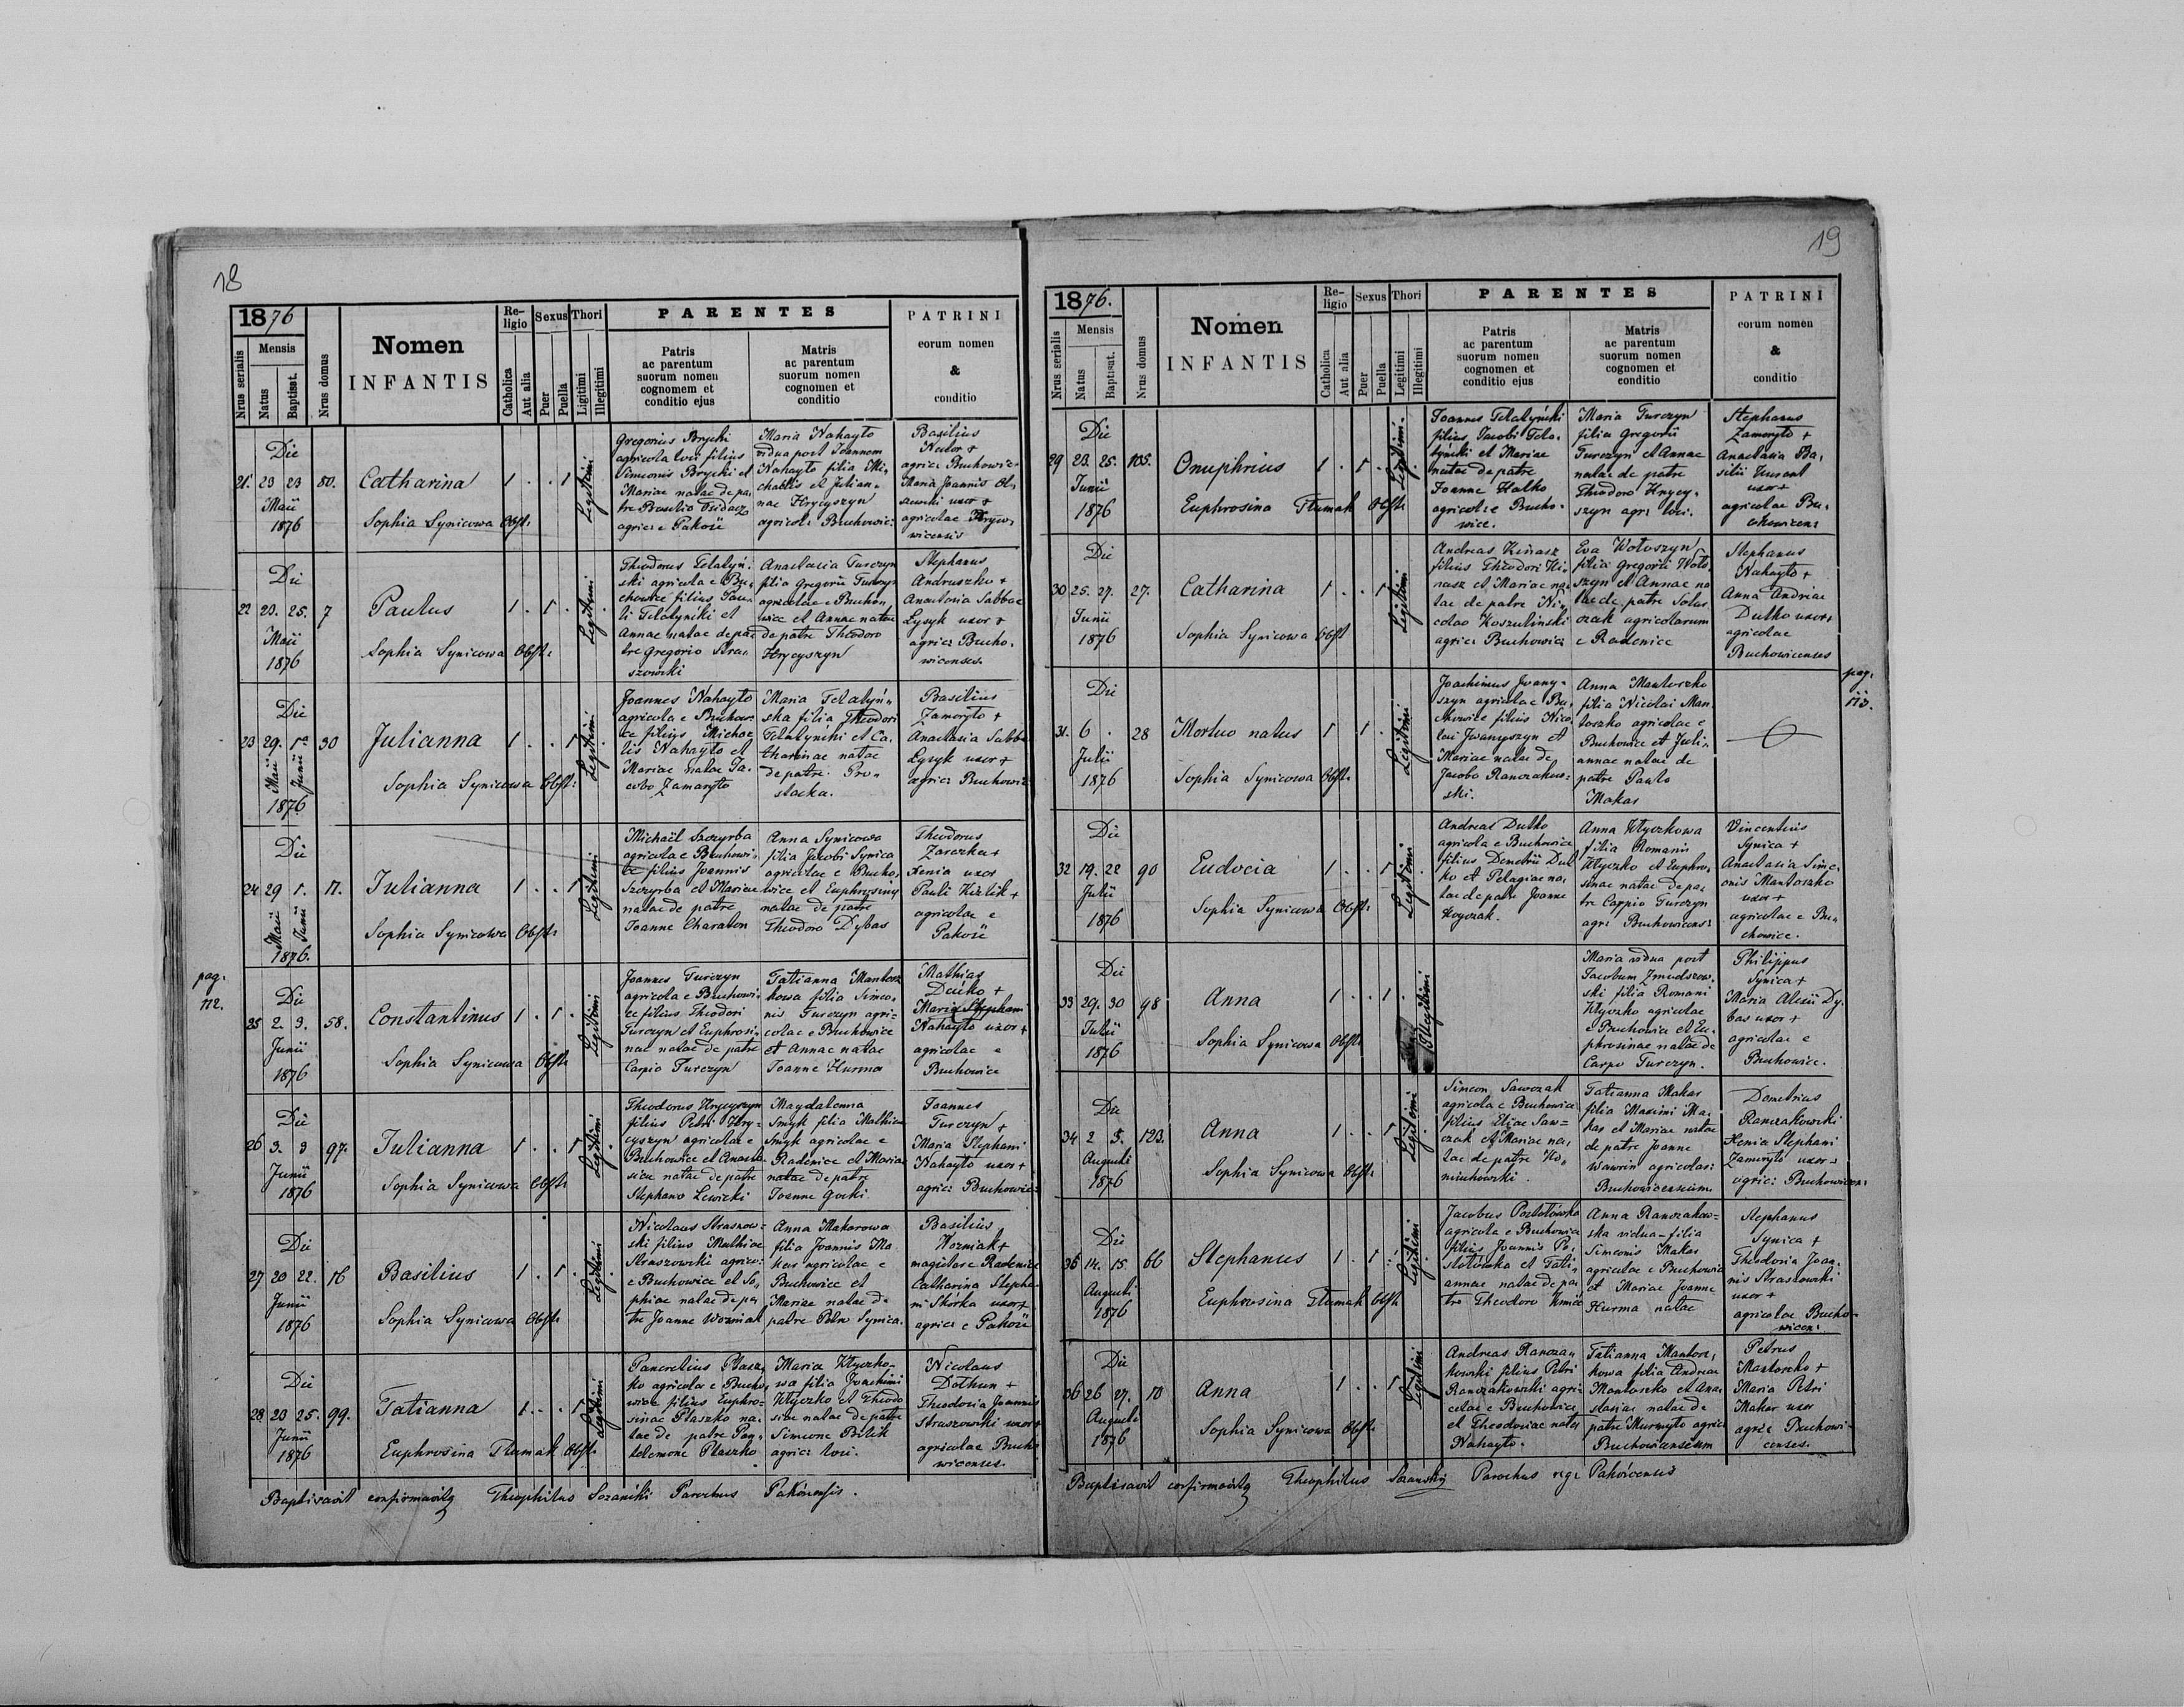 18
1876
Nrus serialis
Mensis
Natus
Baptisat.
Nrus domus
Nomen
INFANTIS
Re-
ligio
Catholica
Aut alia
Sexus
Puer
Puella
Thori
Ligitimi
Illegitimi
PARENTES
Patris
ac parentum
suorum nomen
cognomem et
conditio ejus
Matris
ac parentum
suorum nomen
cognomen et
conditio
PATRINI
eorum nomen
&
conditio
Die
21. 23 23 80.
Maii
1876
Catharina
Sophia Synicowa Obst:
1 . . 1
Legitimi
Gregorius Brycki
agricola loci filius
Simeonis Brycki et
Mariae natae de pa,
tre Basilio
agric: e Pakość
Maria Nahayło
vidua post Joannem
Nahayło filia Mi,
chaelis et Julian,
nae Hrycyszyn
agricola Buchowic:
Basilius
agric: Buchowic:
Maria Joannis
uxor +
agricolae
wicensis
Die
22 23. 25. 7
Maii
1876
Paulus
Sophia Synicowa Obst:
1 . 1 .
Legitimi
Theodorus Telatyń,
ski agricola e Bu,
chowice filius Pau,
li Telatyński et
Annae natae de pa,
tre Gregorio Stra,
szowski
Anastasia Turczyn
filia Gregorii Turczyn
agricolae e Buchow,
wice et Annae natae
de patre Theodoro
Hrycyszyn
Stephanus
Andruszko +
Anastasia Sabbae
Łysyk uxor +
agric: Bucho,
wicenses.
Die
23 29. 1. 30
Maii Junii
1876
Julianna
Sophia Synicowa Obst:
1 . . 1
Legitimi
Joannes Nahayło
agricola e Buchow:
ce filius Michae
lis Nahayło et
Mariae natae Ja,
cobo Zamoryto
Maria Telatyń,
ska filia Theodori
Telatyński et Ca,
tharinae natae
de patre Pro,
stacka.
Basilius
Zamoryto +
Anastasia Sabbae
Łysyk uxor +
agric: Buchowic:
Die
24. 29 1. 17.
Maii Junii
1876.
Julianna
Sophia Synicowa Obst:
1 . . 1
Legitimi
Michaël Szczyrba
agricola e Buchowi,
ce filius Joannis
Szczyrba et Mariae
natae de patre
Joanne Charaton
Anna Synicowa
filia Jacobi Synica
agricolae e Bucho,
wice et Euphrosiny
natae de patre
Theodoro Dybas
Theodorus
Zarczka +
Xenia uxor
Pauli +
agricolae e
Pakość
pag.
112.
Die
25 2. 3. 58.
Junii
1876
Constantinus
Sophia Synicowa Obst:
1 . 1 .
Legitimi
Joannes Turczyn
agricola e Buchowi,
ce filius Theodori
Turczyn et Euphrosi,
nae natae de patre
Carpio Turczyn
Tatianna Mantorz
kowa filia Simeo,
nis Turczyn agri,
colae e Buchowice
et Annae natae
Joanne Hurma
Mathias
Daćko +
Maria Stephani
Nahayło uxor +
agricolae e
Buchowice
Die
26 3. 3 97.
Junii
1876
Julianna
Sophia Synicowa Obst:
1 . . 1
Legitimi
Theodorus Hrycyszyn
filius Petri Hry,
cyszyn agricolae e
Buchowice et Anasta
siae natae de patre
Stephano Lewicki
Magdalenna
Smyk filia Mathiae
Smyk agricolae e
Radenice et Mariae
natae de patre
Joanne Gocki.
Joannes
Turczyn +
Maria Stephani
Nahayło uxor +
agric: Buchowic:
Die
27 20 22. 16
Junii
1876
Basilius
Sophia Synicowa Obst:
1 . 1 .
Legitimi
Nicolaus Straszow,
ski filius Mathiae
Straszowski agrico:
e Buchowice et So,
phiae natae de pa,
tre Joanne Wozniak
Anna Makarowa
filia Joannis Ma
kar agricolae e
Buchowice et
Mariae natae de
patre Petro Synica.
Basilius
Wozniak +
magister e Radenice
Catharina Stepha
ni Skórka uxor +
agric: e Pakość
Die
28. 20 25. 99.
Junii
1876
Tatianna
Euphrosina Tłumak Obst:
1 . . 1
Legitimi
Pancratius Płasz,
ko agricola e Bucho,
wice filius Euphro,
sinae Płaszko na,
tae de patre Pan,
telemone Płaszko
Maria Kłyczko,
wa filia Joachimi
Kłyczko et Theodo
siae natae de patre
Simeone Bilik
agric: loci.
Nicolaus
Dothun +
Theodoria Joannis
Straszowski uxor +
agricolae Bucho
wicenses.
Baptisavit confirmavitq Theophilus Lozański Parochus Pakościensis.
19
1876.
Nrus serialis
Mensis
Natus
Baptisat.
Nrus domus
Nomen
INFANTIS
Re-
ligio
Catholica
Aut alia
Sexus
Puer
Puella
Thori
Legitimi
Illegitimi
PARENTES
Patris
ac parentum
suorum nomen
cognomen et
conditio ejus
Matris
ac parentum
suorum nomen
cognomen et
conditio
PATRINI
eorum nomen
&
conditio
Die
29 23. 25. 105.
Junii
1876
Onuphrius
Euphrosina Tłumak Obst:
1 . 1 .
Legitimi.
Joannes Telatyński
filius Jacobi Tela,
tyński et Mariae
natae de patre
Joanne Halko
agricolae Bucho,
wice.
Maria Turczyn
filia Gregorii
Turczyn et Annae
natae de patre
Theodoro Hrycy,
szyn agr: loci.
Stephanus
Zamoryto +
Anastasia Ba,
silii
uxor +
agricolae Bu,
chowicens:
Die
30 25. 27. 27.
Junii
1876
Catharina
Sophia Synicowa Obst
1 . . 1
Legitimi
Andreas Kinasz
filius Theodori Ki,
nasz et Mariae na,
tae de patre Ni,
colao Koszuliński
agric: Buchowice
Eva Wołoszyn
filia Gregorii Woło,
szyn et Annae na
tae de patre Solus
czak agricolarum
e Radenice
Stephanus
Nahayło +
Anna Andreae
Dutko uxor +
agricolae
Buchowicenses
pag.
113.
Die
31. 6 . 28
Julii
1876
Mortuo natus
Sophia Synicowa Obst:
1 1 .
Legitimi
Joachimus Iwany,
szyn agricolae Bu,
chowice filius Nico,
lai Iwanyszyn et
Mariae natae de
Jacobo Ranczakow,
ski.
Anna Mantorzko
filia Nicolai Man
torzko agricolae e
Buchowice et Juli,
annae natae de
patre Paulo
Makar
Die
32 19. 22 90
Julii
1876
Eudocia
Sophia Synicowa Obst:
1 . . 1
Legitimi
Andreas Dutko
agricola e Buchowice
filius Demetrii Dut
ko et Pelagiae na,
tae de patre Joanne
Koyczak.
Anna Kłyczkowa
filia Romani
Kłyczko et Euphro,
sinae natae de pa,
tre Carpio Turczyn
agri Buchowicens:
Vincentius
Synica +
Anastasia Sime,
onis Mantorzko
uxor +
agricolae e Bu,
chowice.
Die
33 29. 30 98
Julii
1876
Anna
Sophia Synicowa Obst:
1 . . 1 .
Illegitimi
Maria vidua post
Jacobum Zmudszow,
ski filia Romani
Kłyczko agricolae
e Buchowice et Eu,
phrosinae natae de
Carpo Turczyn.
Philippus
Synica +
Maria Alexii Dy,
bas uxor +
agricolae e
Buchowice.
Die
34 2 3. 123.
Augusti
1876
Anna
Sophia Synicowa Obst:
1 . . 1
Legitimi
Simeon Sawczak
agricola e Buchowice
filius Eliae Saw=
czak et Mariae na,
tae de patre Ko,
niuchowski.
Tatianna Makar
filia Maximi Ma,
kar et Mariae natae
de patre Joanne
Wawrin agricolar:
Buchowicensium.
Demetrius
Ranczakowski
Xenia Stephani
Zamoryto uxor =
agric: Buchowicen:
Die
36 14. 15. 66
Augusti
1876
Stephanus
Euphrosina Tłumak Obst:
1 . 1
Legitimi
Jacobus Postołowska
agricola e Buchowice
filius Joannis Po,
stołowska et Tati,
annae natae de pa
tre Theodoro Kmieć
Anna Ranczakow=
ska vidua - filia
Simeonis Makar
agricolae e Buchowice
et Mariae Joanne
Hurma natae
Stephanus
Synica +
Theodoria Joan,
nis Straszowski
uxor +
agricolae Bucho=
wicen:
Die
36 26 27. 10
Augusti
1876
Anna
Sophia Synicowa Obst:
1 . . 1
Legitimi
Andreas Rancza,
kowski filius Petri
Ranczakowski agri:
colae e Buchowice
et Theodosiae natae
Nahayło.
Tatianna Mantorz,
kowa filia Andreae
Mantorzko et Ana
stasiae natae de
patre Murmyło agric:
Buchowicensium
Petrus
Mantorzko +
Maria Petri
Makar uxor
agric Buchowi=
censes.
Baptisavit confirmavitq Theophilus Lozanskij Parochus rgr Pakościensis